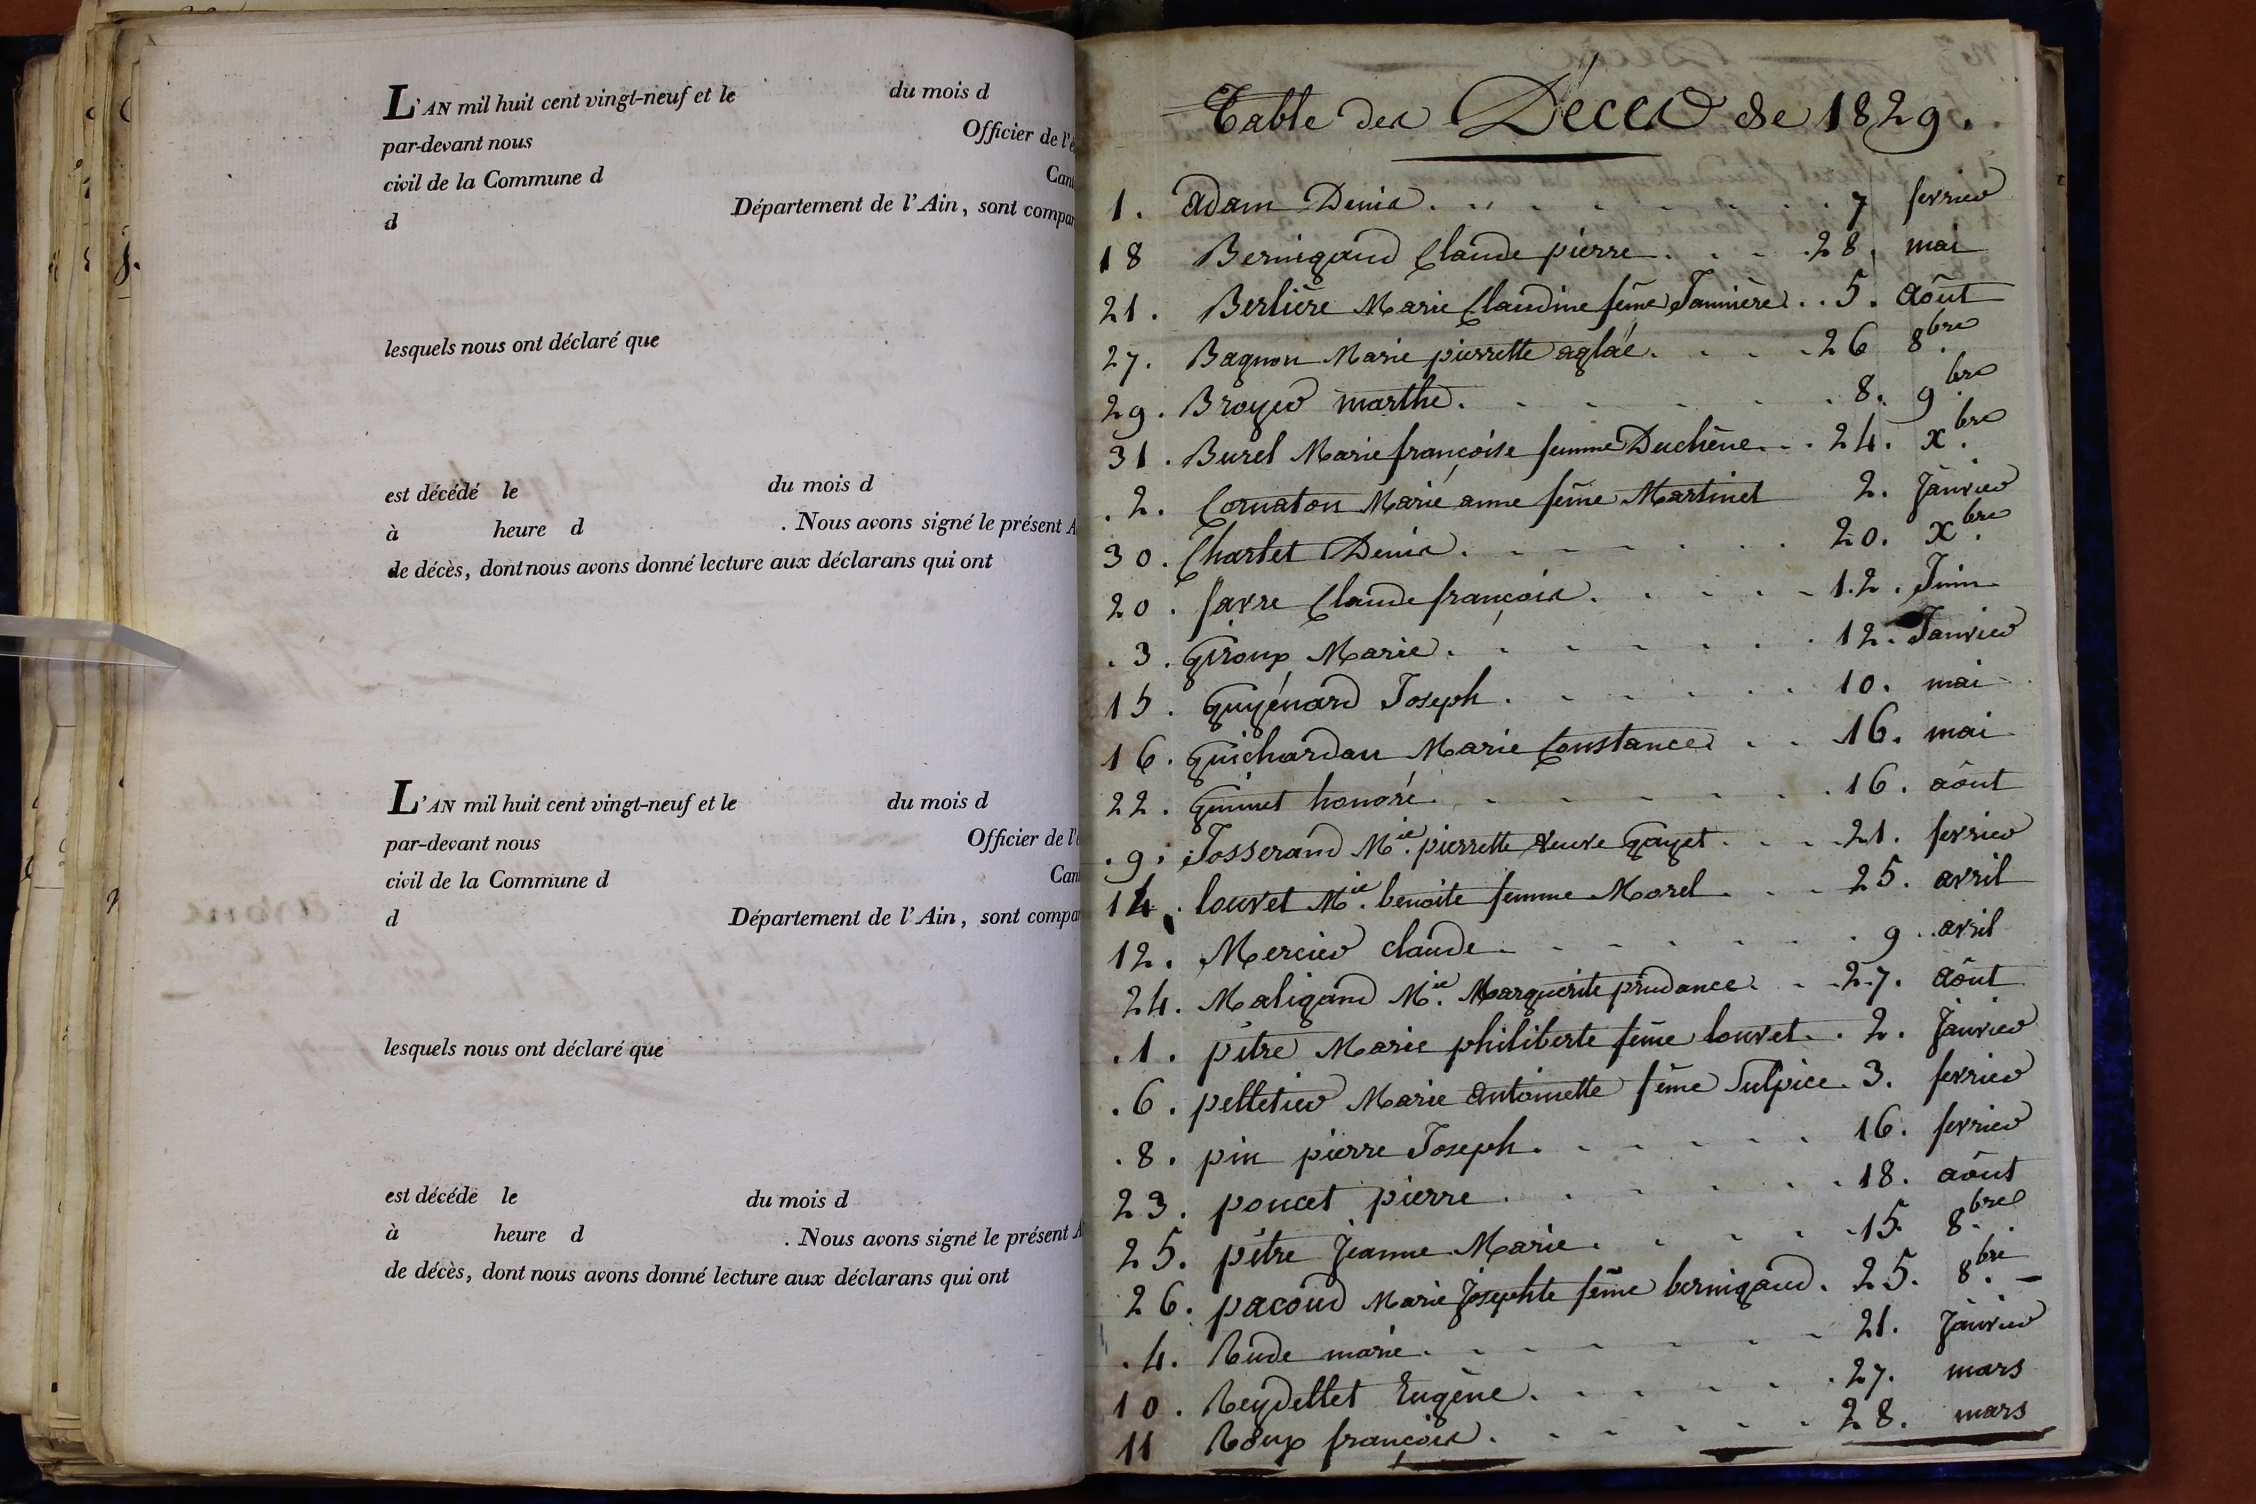 L'AN mil huit cent vingt-neuf et le du mois d
par-devant nous Officier de l'é
civil de la Commune d Cant
d Département de l'Ain, sont compar
lesquels nous ont déclaré que
est décédé le du mois d
à heure d . Nous avons signé le présent A
de décès, dont nous avons donné lecture aux déclarans qui ont
L'AN mil huit cent vingt-neuf et le du mois d
par-devant nous Officier de l'é
civil de la Commune d Can
d Département de l'Ain, sont compar
lesquels nous ont déclaré que
est décédé le du mois d
à heure d . Nous avons signé le présent A
de décès, dont nous avons donné lecture aux déclarans qui ont
Table des Décès de 1829.
1. adam Denis 7 fevrier
18 Bernigaud Claude pierre 28. mai
21. Berlière Marie Claudine fême Jannière 5. août
27. Bagnon Marie pierrette aglaé 26 8bre
29. Broyer marthe 8. 9bre
31. Burel Marie françoise femme Duchêne 24. xbre
.2. Cornaton Marie anne fême Martinet 2. Janvier
30. Charlet Denis 20. xbre
20. favre Claude françois 12. Juin
.3. Giroux Marie 12. Janvier
15. Guyénard Joseph 10. mai
16. Guichardan Marie Constance 16. mai
22. Guinet honoré 16. août
.9. Josserand Mie. pierrette veuve Gayet 21. fevrier
14. louvet Mie. benoite femme Morel 25. avril
12. Mercier claude 9. avril
24. Maligand Mie. Marguerite prudance 27. août
.1. pitre Marie philiberte fême louvet 2. Janvier
.6. pelletier Marie antoinette fême Sulpice 3. fevrier
.8. pin pierre Joseph 16. fevrier
23. poncet pierre 18. août
25. pitre Jeanne Marie 15. 8bre.
26. pacoud Marie Josephte fême bernigaud 25. 8bre.
.4. Rude marie 21. Janvier
10. Reydellet Eugène 27. mars
11 Roux françois 28. mars